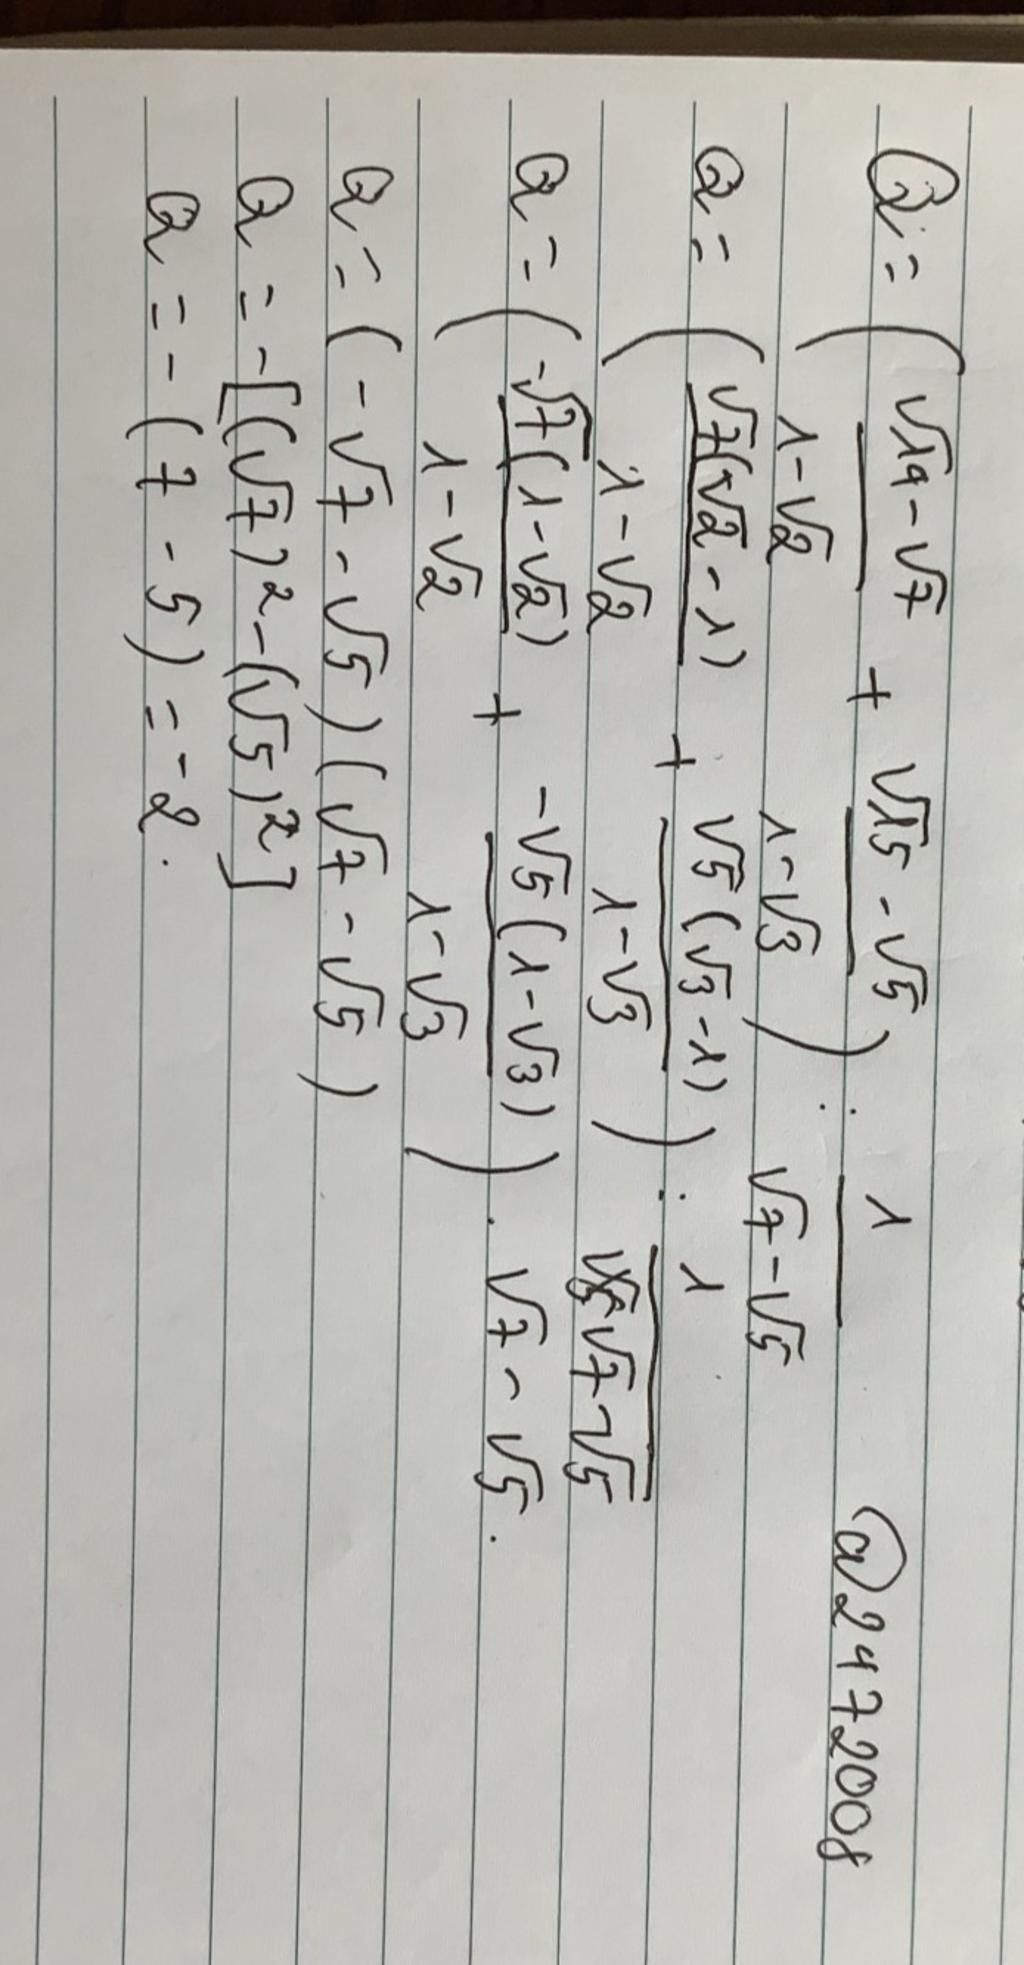 Q = ( (√14 - √7)/(1 - √2) + (√15 - √5)/(1 - √3) ) : 1/(√7 - √5) @2472008
Q = ( √7(√2 - 1)/(1 - √2) + √5(√3 - 1)/(1 - √3) ) : 1/(√7 - √5)
Q = ( -√7(1 - √2)/(1 - √2) + -√5(1 - √3)/(1 - √3) ) . √7 - √5.
Q = (-√7 - √5)(√7 - √5)
Q = -[(√7)² - (√5)²]
Q = -(7 - 5) = -2.